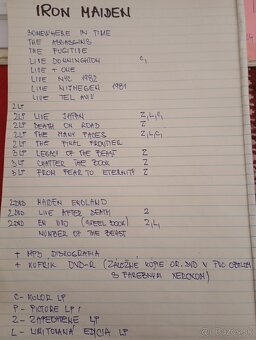 IRON MAIDEN
SOMEWHERE IN TIME
THE ASSASSINS
THE FUGITIVE
LIVE DONNINGHTON C,
LIVE + ONE
LIVE NYC 1982
LIVE NIJMEGEN 1981
LIVE TEL AVIV
2LP
2LP LIVE JAPAN Z,L,C,
2LP DEATH ON ROAD Z
2LP THE MANY FACES Z,L,C,
2LP THE FINAL FRONTIER
3LP LEGACY OF THE BEAST Z
3LP CHAPTER THE BOOK Z
3LP FROM FEAR TO ETERNITY Z
2DVD MAIDEN ENGLAND
2DVD LIVE AFTER DEATH Z
2DVD EN VIVO (STEEL BOOK) Z,L,
NUMBER OF THE BEAST
+ MP3 DISKOGRAFIA
+ KUFRIK DVD-R (ZÁLOŽNÉ KÓPIE OR. DVD V PVC OBALOCH
S FAREBNÝM XEROXOM)
C - KOLOR LP
P - PICTURE LP
Z - ZAPEČATENÉ LP
L - LIMITOVANÁ EDÍCIA LP